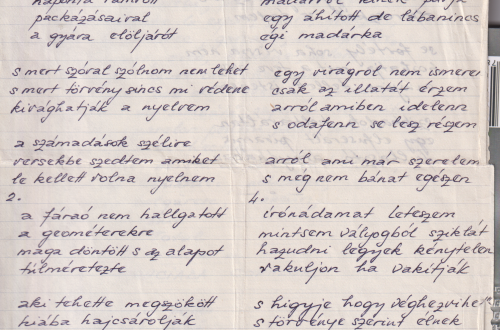 naponta rámrótt
packázásairal
a gyára elöljárót
s mert szóral szólnom nem lehet
s mert törvény sincs mi védene
kivághatják a nyelvem
a számadások szélire
versekbe szedtem amiket
le kellett volna nyelnem
2.
a fáraó nem hallgatott
a geométerekre
maga döntött s az alapot
túlméretezte
aki tehette megszökött
hiába hajcsárolják
egy áhított de lábanincs
égi madárka
egy virágról nem ismerem
csak az illatát érzem
arról amiben idelenn
s odafenn se lesz részem
arról ami már szerelem
s még nem bánat egészen
4.
írónádamat leteszem
mintsem vályogból sziklát
hazudni legyek kénytelen
vakuljon ha vakítják
s higyje hogy véghezvihe
s törvénye szerint élnek